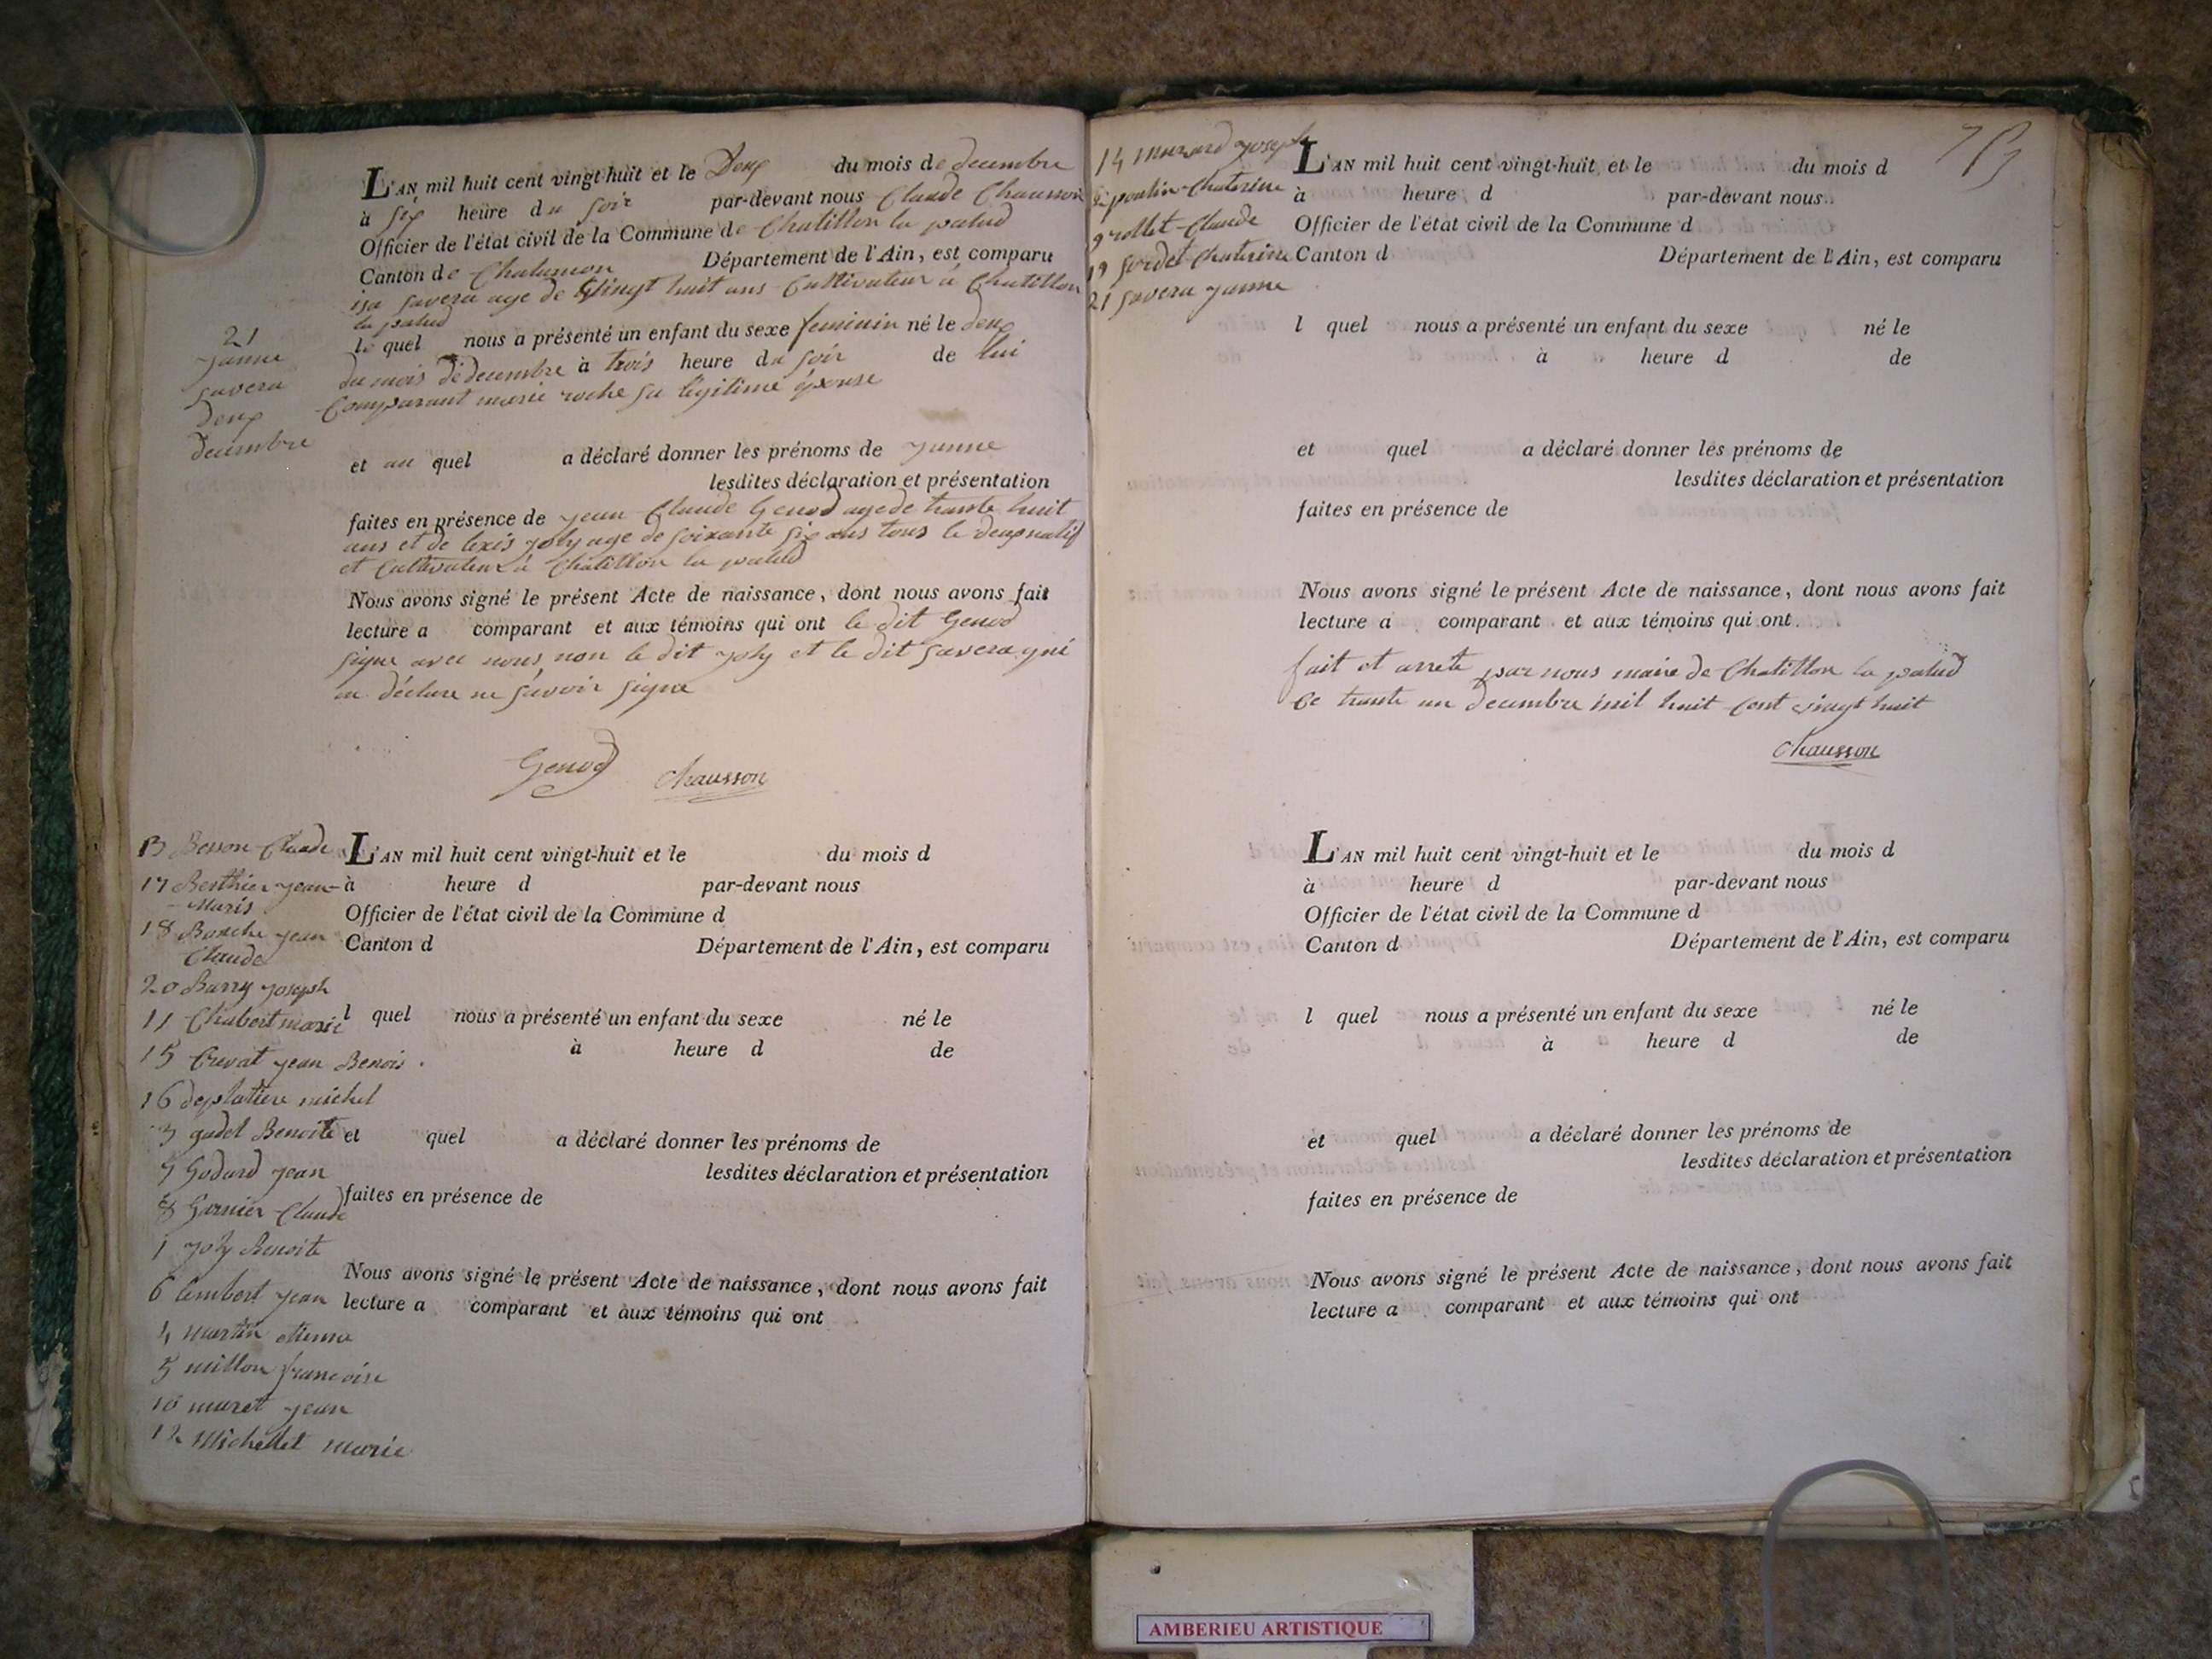 L'AN mil huit cent vingt-huit et le Deux du mois de decembre
à six heure du soir par-devant nous Claude Chausson
Officier de l'état civil de la Commune de Chatillon la palud
Canton de Chalamon Département de l'Ain, est comparu
savera age de vingt huit ans Cultivateur à Chatillon
la palud
le quel nous a présenté un enfant du sexe feminin né le deux
du mois de decembre à trois heure du soir de lui
Comparant marie roche sa légitime épouse
21
janne
savera
Deux
decembre
et au quel a déclaré donner les prénoms de janne
lesdites déclaration et présentation
faites en présence de jean Claude Genod age de trante huit
ans et de lexis joly age de soixante six ans tous le deux natif
et Cultivateur à Chatillon la palud
Nous avons signé le présent Acte de naissance, dont nous avons fait
lecture a comparant et aux témoins qui ont le dit Genod
signe avec nous non le dit joly et le dit savera qui
on déclare ne savoir signe
Genod Chausson
13 Besson Claude
17 Berthier jean
Maris
18 jean
Claude
20 Barry joseph
11 Chabert marie
15 Crevat jean Benois
16 deplatiere michel
3 gadel Benoite
7 Godard jean
8 Garnier Claude
1 joly Benoite
6 Lembert jean
4 martin etienne
5 millon francoise
10 muret jean
12 Michellet marie
L'AN mil huit cent vingt-huit et le du mois d
à heure d par-devant nous
Officier de l'état civil de la Commune d
Canton d Département de l'Ain, est comparu
l quel nous a présenté un enfant du sexe né le
à heure d de
et quel a déclaré donner les prénoms de
lesdites déclaration et présentation
faites en présence de
Nous avons signé le présent Acte de naissance, dont nous avons fait
lecture a comparant et aux témoins qui ont
14 joseph
2 poulin Chaterine
9 rollet Claude
19 sordet Chaterine
21 savera janne
L'AN mil huit cent vingt-huit et le du mois d
à heure d par-devant nous
Officier de l'état civil de la Commune d
Canton d Département de l'Ain, est comparu
l quel nous a présenté un enfant du sexe né le
à heure d de
et quel a déclaré donner les prénoms de
lesdites déclaration et présentation
faites en présence de
Nous avons signé le présent Acte de naissance, dont nous avons fait
lecture a comparant et aux témoins qui ont
fait et arrete par nous maire de Chatillon la palud
Ce trante un decembre mil huit Cent vingt huit
Chausson
L'AN mil huit cent vingt-huit et le du mois d
à heure d par-devant nous
Officier de l'état civil de la Commune d
Canton d Département de l'Ain, est comparu
l quel nous a présenté un enfant du sexe né le
à heure d de
et quel a déclaré donner les prénoms de
lesdites déclaration et présentation
faites en présence de
Nous avons signé le présent Acte de naissance, dont nous avons fait
lecture a comparant et aux témoins qui ont
AMBERIEU ARTISTIQUE